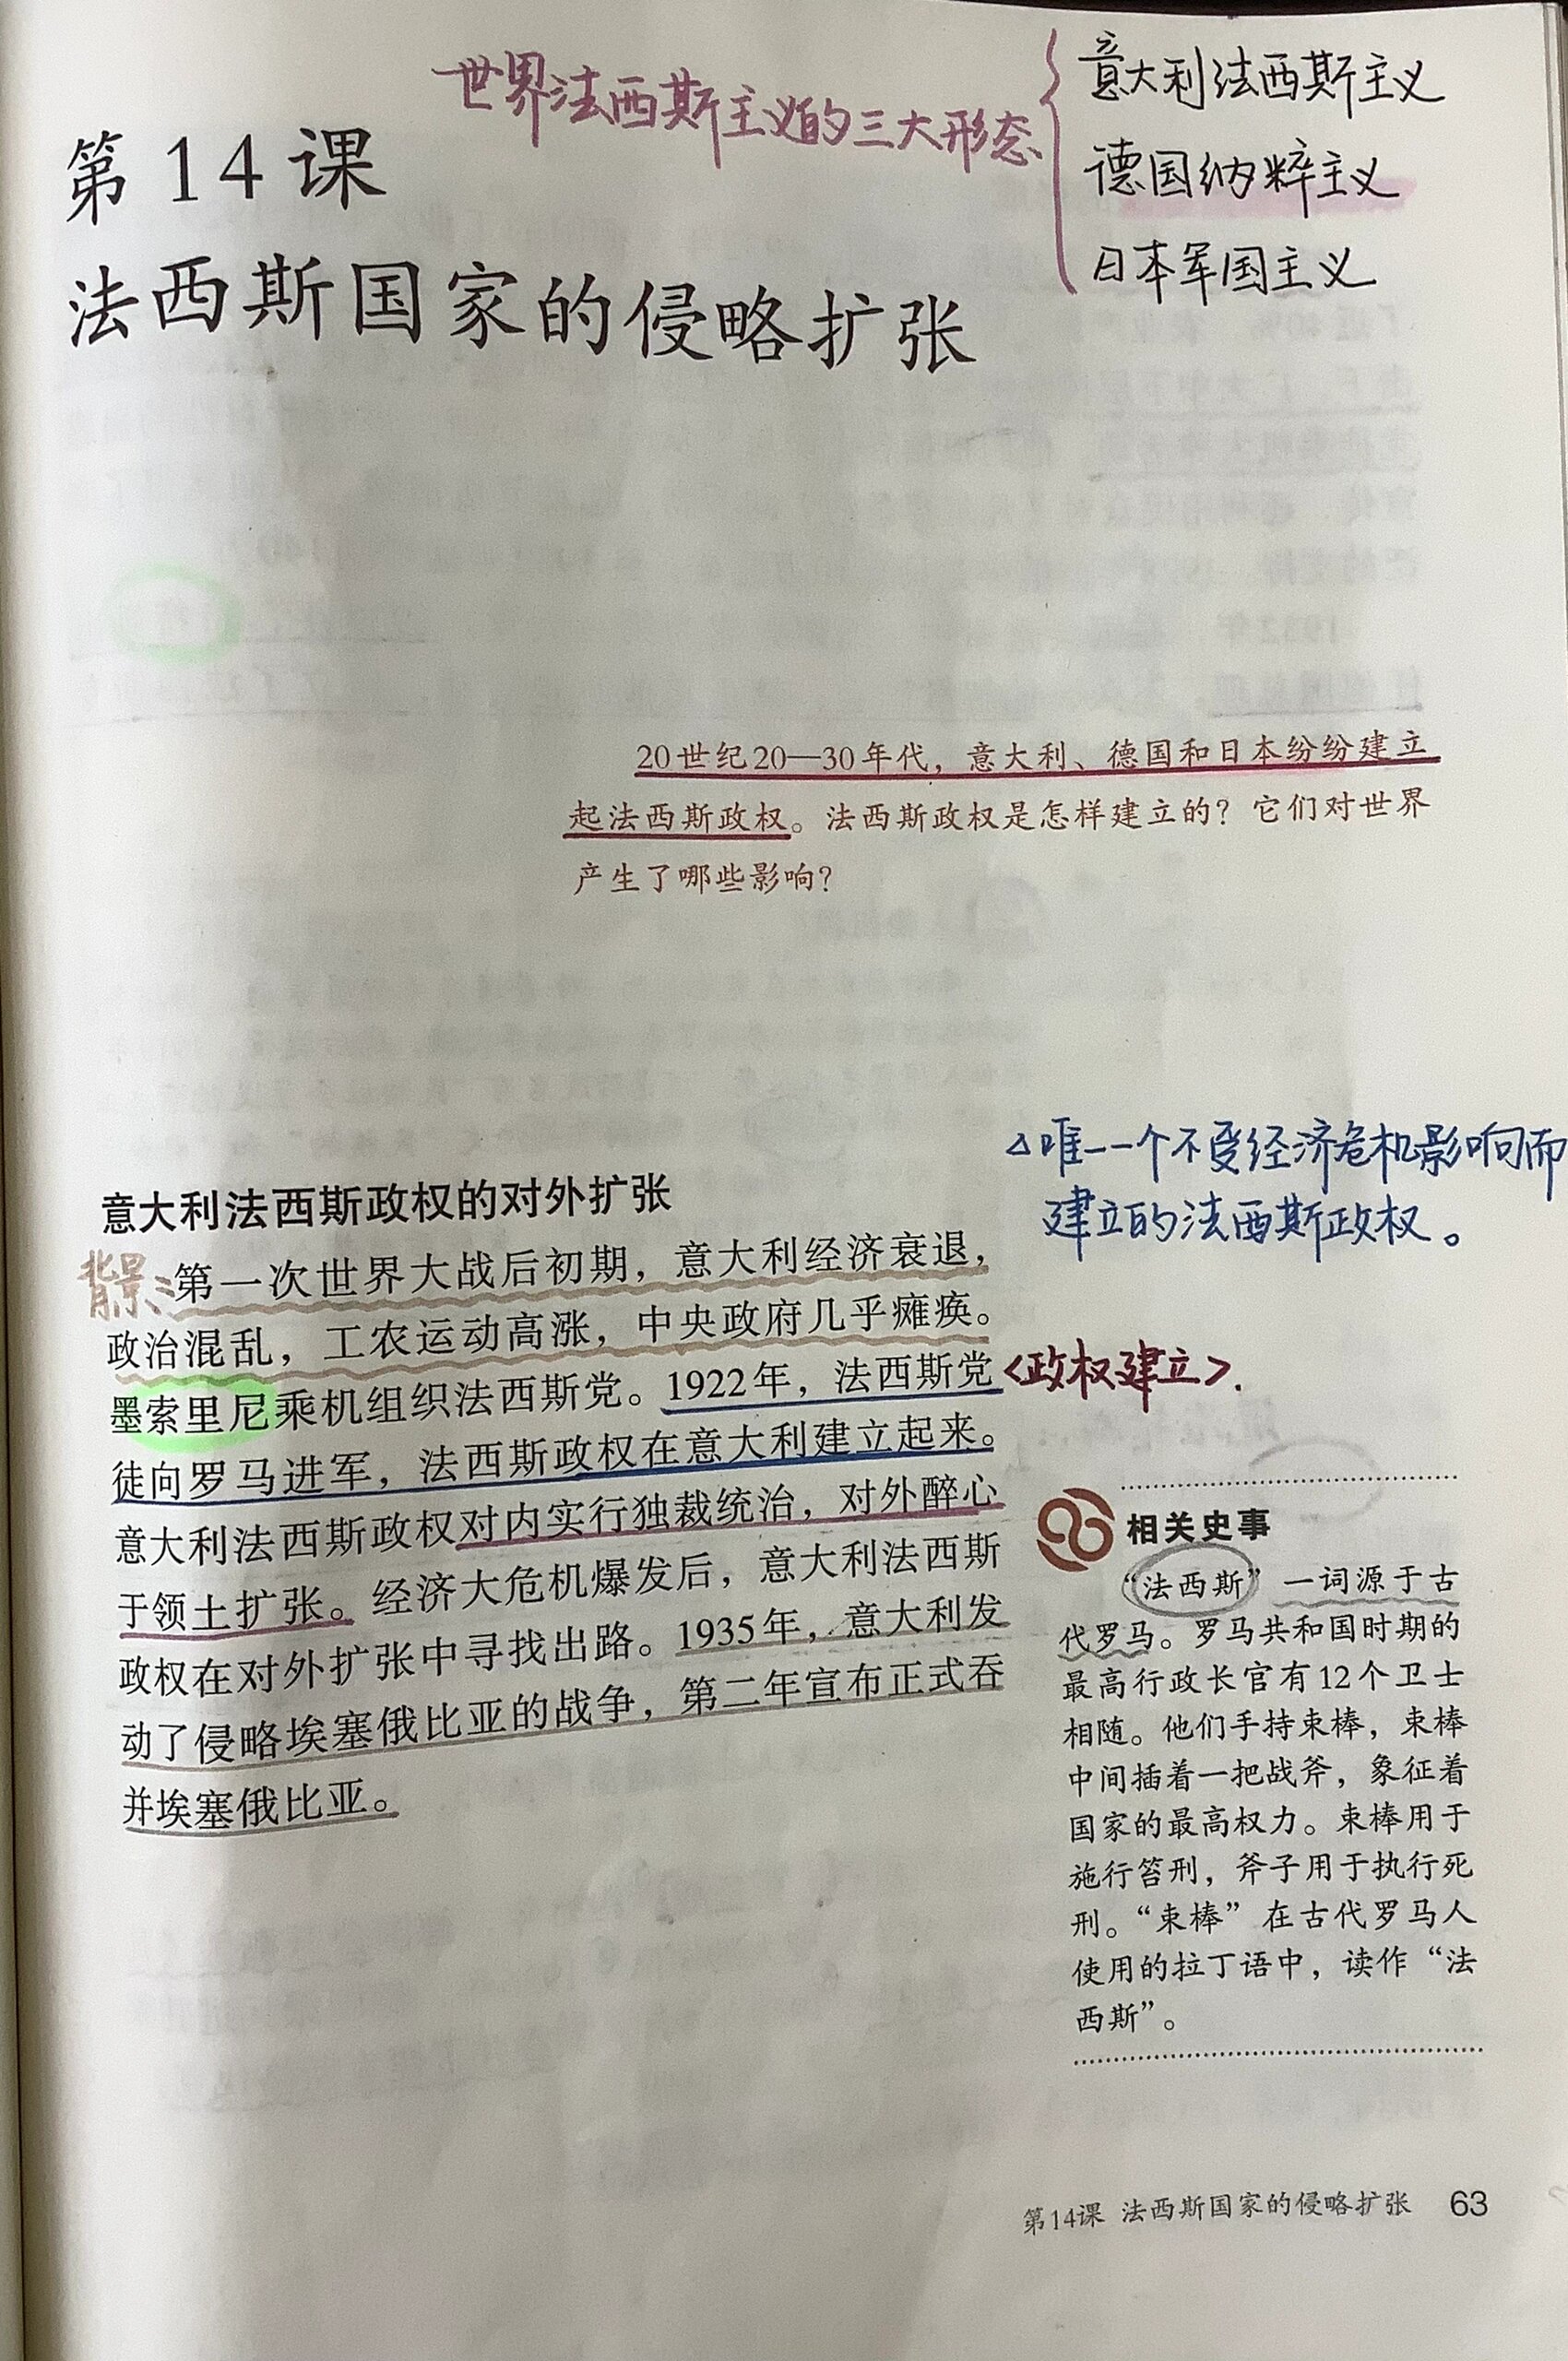 世界法西斯主义的三大形态
意大利法西斯主义
德国纳粹主义
日本军国主义
第14课
法西斯国家的侵略扩张
20世纪20—30年代，意大利、德国和日本纷纷建立
起法西斯政权。法西斯政权是怎样建立的？它们对世界
产生了哪些影响？
△唯一一个不受经济危机影响而
建立的法西斯政权。
意大利法西斯政权的对外扩张
背景：第一次世界大战后初期，意大利经济衰退，
政治混乱，工农运动高涨，中央政府几乎瘫痪。
墨索里尼乘机组织法西斯党。1922年，法西斯党
<政权建立>.
徒向罗马进军，法西斯政权在意大利建立起来。
意大利法西斯政权对内实行独裁统治，对外醉心
于领土扩张。经济大危机爆发后，意大利法西斯
政权在对外扩张中寻找出路。1935年，意大利发
动了侵略埃塞俄比亚的战争，第二年宣布正式吞
并埃塞俄比亚。
相关史事
“法西斯”一词源于古
代罗马。罗马共和国时期的
最高行政长官有12个卫士
相随。他们手持束棒，束棒
中间插着一把战斧，象征着
国家的最高权力。束棒用于
施行笞刑，斧子用于执行死
刑。“束棒”在古代罗马人
使用的拉丁语中，读作“法
西斯”。
第14课 法西斯国家的侵略扩张 63